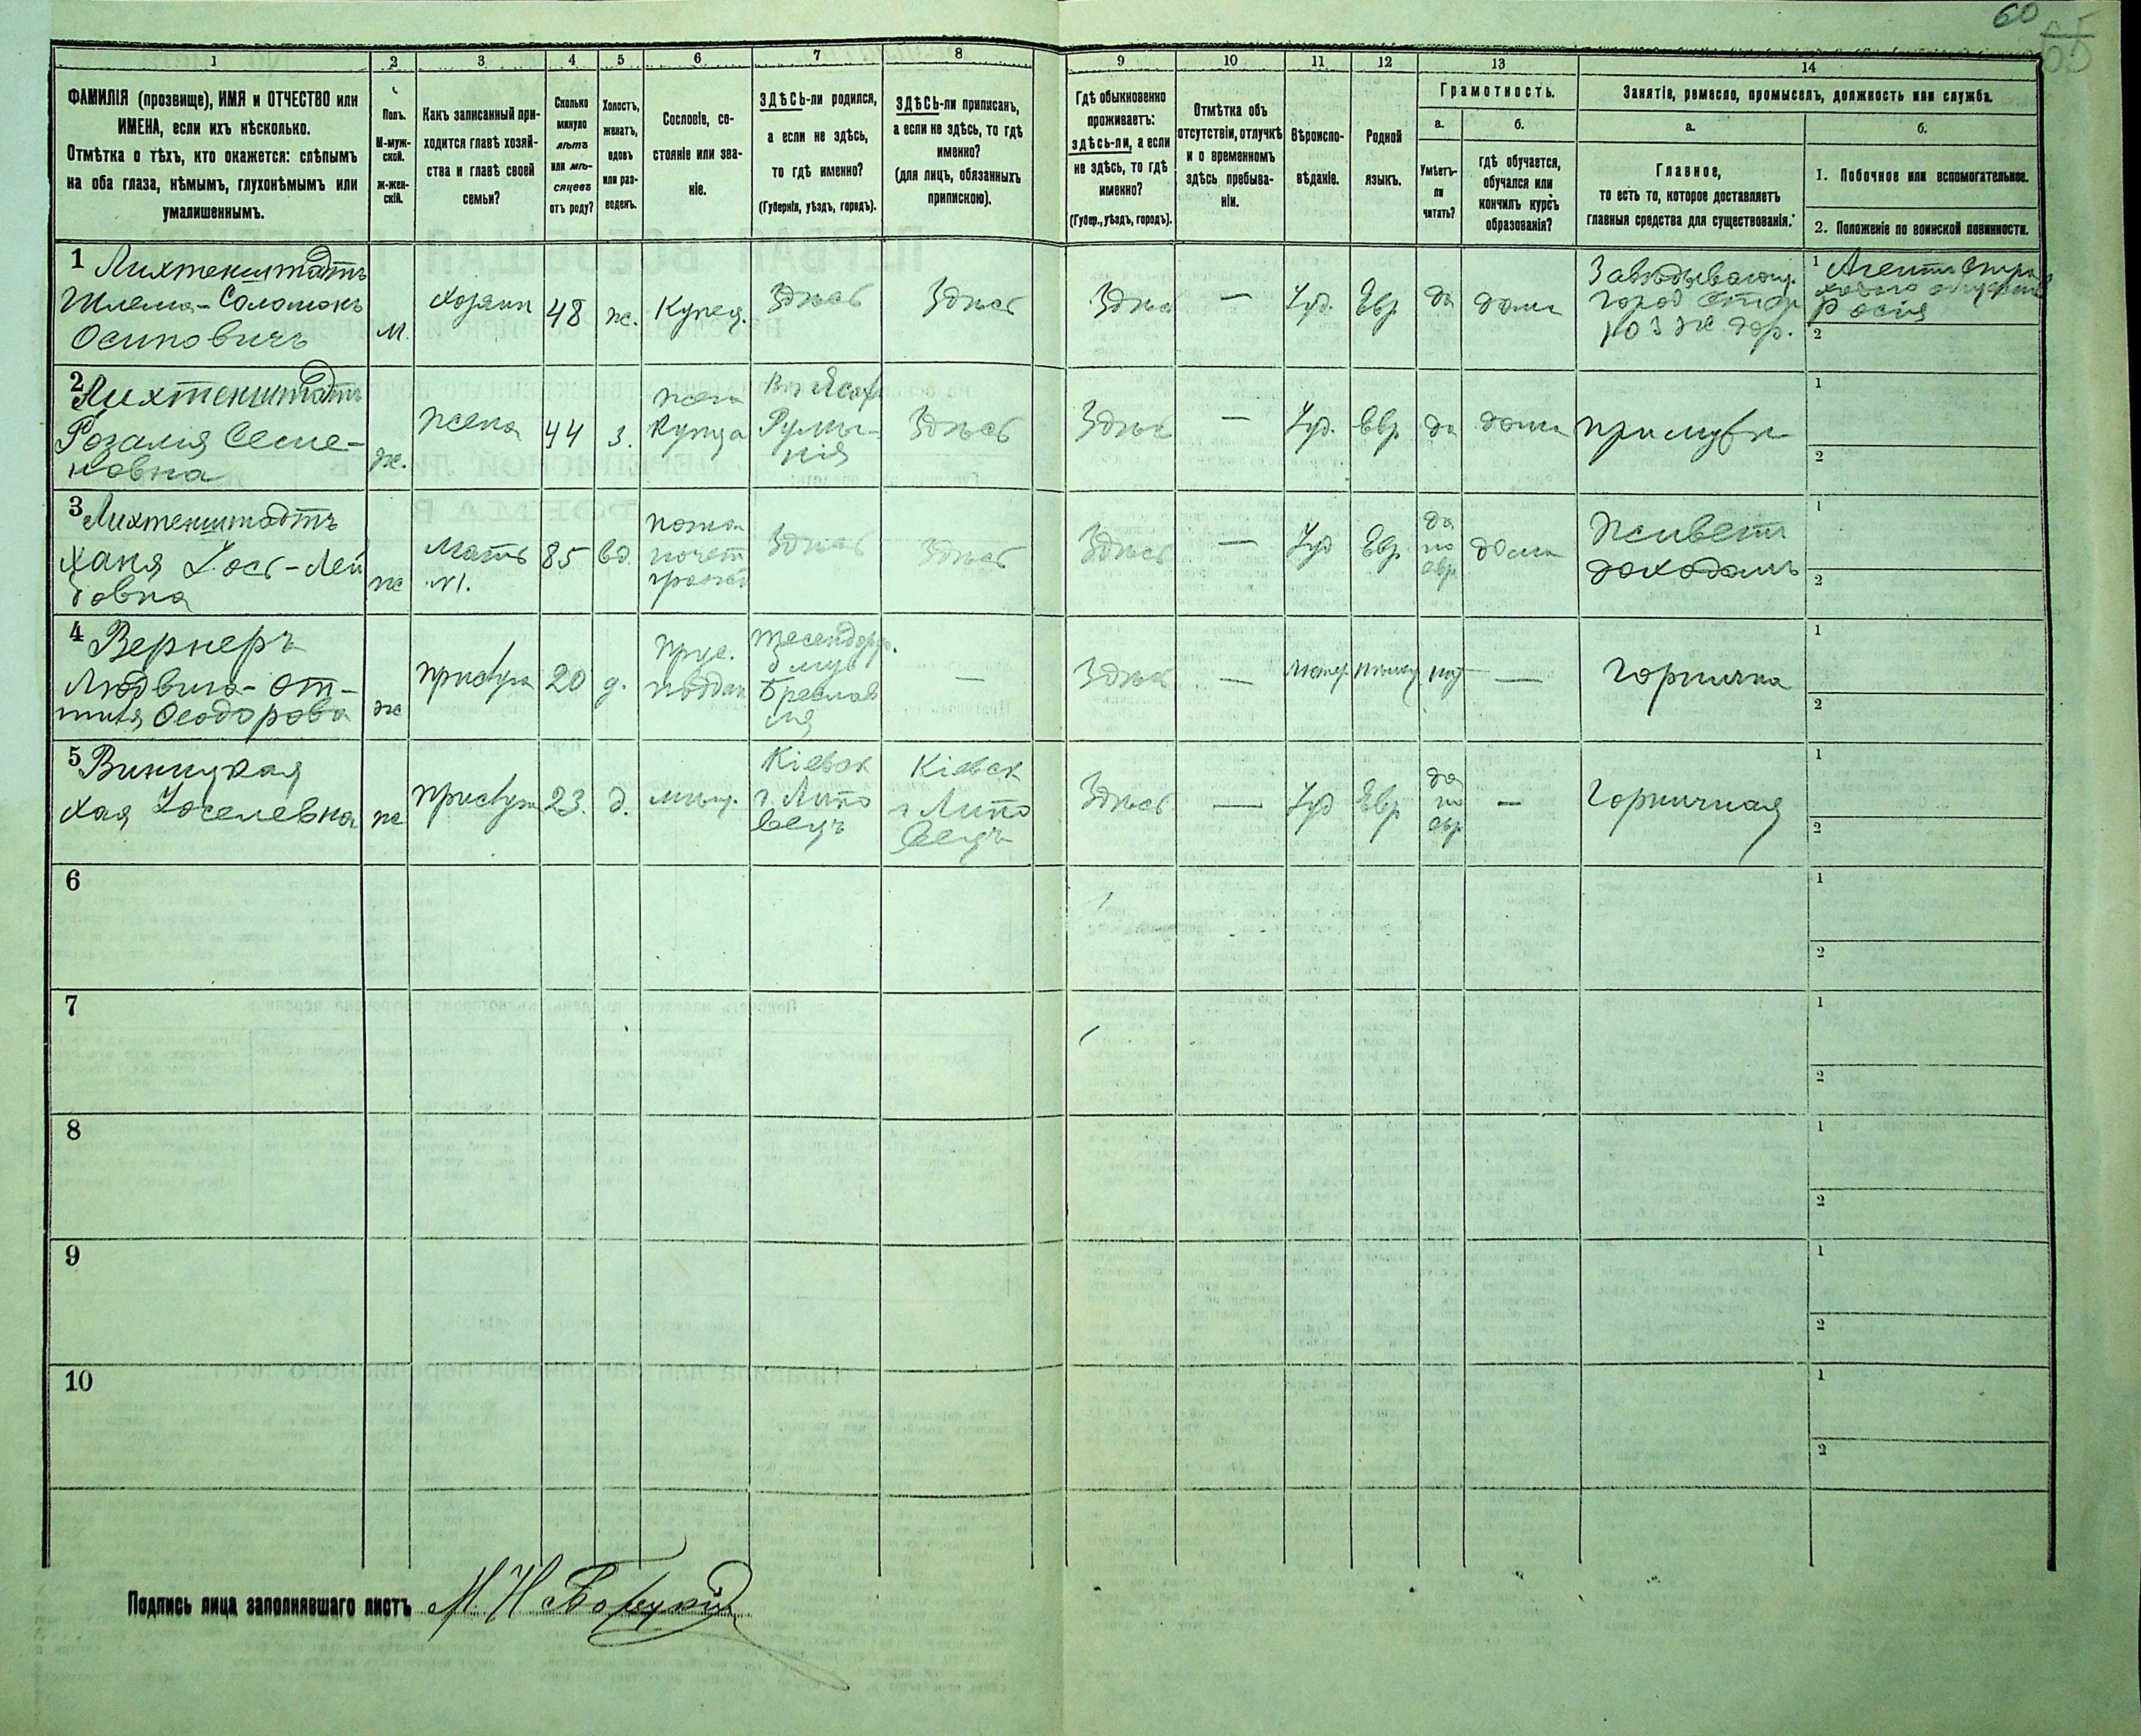 60
1 2 3 4 5 6 7 8 9 10 11 12 13 14
ФАМИЛІЯ (прозвище), ИМЯ и ОТЧЕСТВО или
ИМЕНА, если ихъ нѣсколько.
Отмѣтка о тѣхъ, кто окажется: слѣпымъ
на оба глаза, нѣмымъ, глухонѣмымъ или
умалишеннымъ.
Полъ.
М-муж-
ской.
ж-жен-
скій.
Какъ записанный при-
ходится главѣ хозяй-
ства и главѣ своей
семьи?
Сколько
минуло
лѣтъ
или мѣ-
сяцевъ
отъ роду?
Холостъ,
женатъ,
вдовъ
или раз-
веденъ.
Сословіе, со-
стояніе или зва-
ніе.
ЗДѢСЬ-ли родился,
а если не здѣсь,
то гдѣ именно?
(Губернія, уѣздъ, городъ).
ЗДѢСЬ-ли приписанъ,
а если не здѣсь, то гдѣ
именно?
(для лицъ, обязанныхъ
припискою).
Гдѣ обыкновенно
проживаетъ:
здѣсь-ли, а если
не здѣсь, то гдѣ
именно?
(Губер., уѣздъ, городъ).
Отмѣтка объ
отсутствіи, отлучкѣ
и о временномъ
здѣсь пребыва-
ніи.
Вѣроиспо-
вѣданіе.
Родной
языкъ.
Грамотность.
а.
Умѣетъ-
ли
читать?
б.
гдѣ обучается,
обучался или
кончилъ курсъ
образованія?
Занятіе, ремесло, промыселъ, должность или служба.
а.
Главное,
то есть то, которое доставляетъ
главныя средства для существованія.
б.
1. Побочное или вспомогательное.
2. Положеніе по воинской повинности.
1 Лихтенштадтъ
Шлема-Соломонъ
Осиповичъ
м.
хозяин
48
ж.
Купец.
Здѣсь
Здѣсь
Здѣс
—
Іуд.
Евр
да
дома
Завѣдывающ.
1
2
2 Лихтенштадтъ
Розалія Семе-
новна
ж.
жена
44
з.
жена
купца
Румы-
нія
Здѣсь
Здѣс
—
Іуд.
Евр
да
дома
при мужѣ
1
2
3 Лихтенштадтъ
Ханя Іось-Лей
бовна
ж
Мать
№1.
85
вд.
почет
Здѣсь
Здѣсь
Здѣсь
—
Іуд
Евр
да
по
евр
дома
Живетъ
доходомъ
1
2
4 Вернеръ
Людвига-От-
тилія Феодорова
ж
прислуга
20
д.
прус.
поддан
—
Здѣсь
—
Лютер.
нѣмец
—
горнична
1
2
5 Виницкая
Хая Іоселевна
ж
прислуга
23.
д.
мѣщ.
Кіевск
г. Липо
вецъ
Кіевск
г Липо
вецъ
Здѣсь
—
Іуд
Евр
да
по
евр
—
Горничная
1
2
6
1
2
7
1
2
8
1
2
9
1
2
10
1
2
Подпись лица заполнявшаго листъ